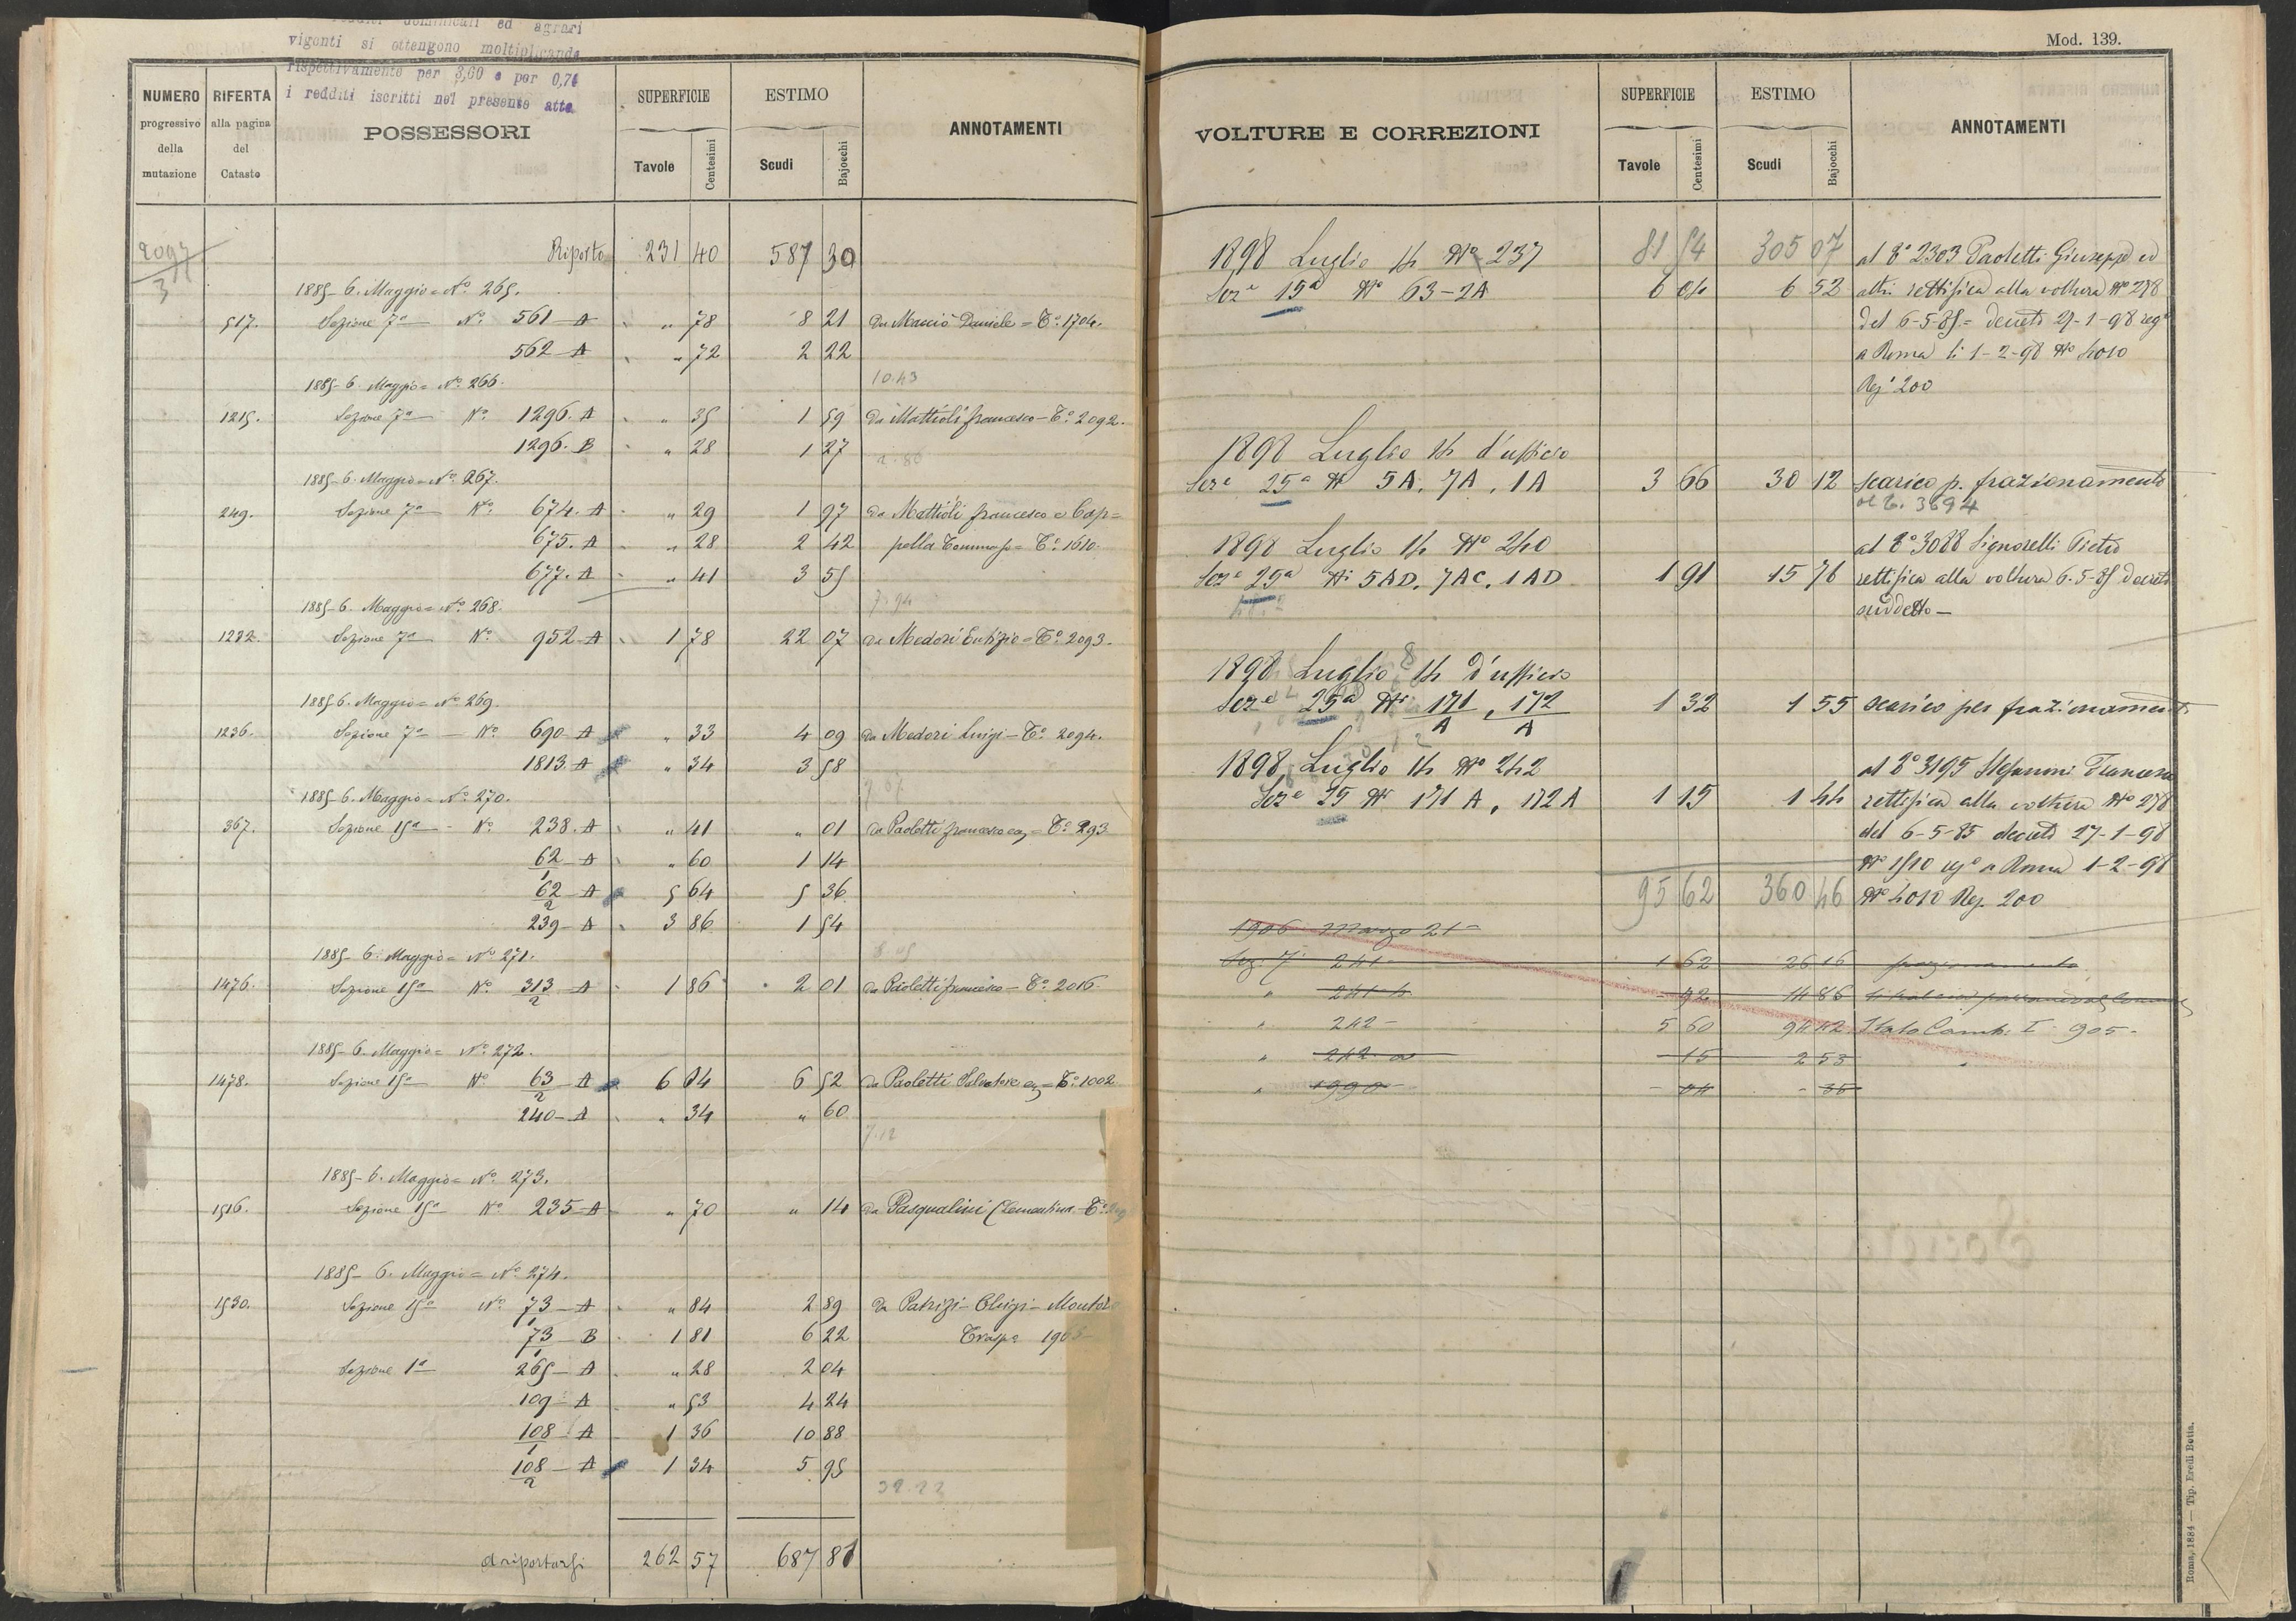 dominicali ed agrari
vigenti si ottengono moltiplicando
rispettivamente per 3,60 e per 0,74
i redditi iscritti nel presente atto
NUMERO progressivo della mutazione
RIFERTA alla pagina del Catasto
POSSESSORI
SUPERFICIE
Tavole
Centesimi
ESTIMO
Scudi
Bajocchi
ANNOTAMENTI
2097
3
Riporto 231 40 587 30
1885-6. Maggio = No. 265.
517. Sezione 7a No. 561 A " 78 8 21 Da Mascio Daniele = To. 1704.
562 A " 72 2 22
1885-6. Maggio = No. 266. 10.43
1215. Sezione 7a No. 1296. A " 35 1 59 Da Mattioli francesco - To. 2092.
1296. B " 28 1 27
2.86
1885-6. Maggio = No. 267.
249. Sezione 7a No. 674. A " 29 1 97 Da Mattioli francesco e Cap=
675. A " 28 2 42 pella Tommaso = To. 1610.
677. A " 41 3 55
1885-6. Maggio = No. 268. 7.94
1282. Sezione 7a No. 952 A 1 78 22 07 Da Medori Eutizio = To. 2093.
1885-6. Maggio = No 269.
1236. Sezione 7a No. 690 A " 33 4 09 Da Medori Luigi - To. 2094.
1813 A " 34 3 58
1885-6. Maggio = No. 270.
367. Sezione 15a No. 238. A " 41 " 01 Da Paoletti francesco = To. 293
62/1 A " 60 1 14
62/2 A 5 64 5 36
239 A 3 86 1 54
1885-6. Maggio = No 271. 8.05
1476. Sezione 15a No. 313/2 A 1 86 2 01 Da Paoletti francesco - To. 2016.
1885-6. Maggio = No. 272.
1478. Sezione 15a No 63/2 A 6 04 6 52 Da Paoletti Salvatore = To. 1002
240 A " 34 " 60
7.12
1885-6. Maggio = No 273.
1516. Sezione 15a No 235 A " 70 " 14 Da Pasqualini Clementina To.
1885-6. Maggio = No 274.
1530. Sezione 15a No. 73/1 A " 84 2 89 Da Patrizi - Chigi - Montoro
73/1 B 1 81 6 22 Trasp. 190
Sezione 1a 265 A " 28 2 04
109 A " 53 4 24
108/1 A 1 36 10 88
108/2 A 1 34 5 95
32.22
A riportarsi 262 57 687 81
Mod. 139.
VOLTURE E CORREZIONI
SUPERFICIE
Tavole
Centesimi
ESTIMO
Scudi
Bajocchi
ANNOTAMENTI
1898 Luglio 14 No 237 81 54 305 07 al To 2303 Paoletti Giuseppe ed
Seze 15a No 63-2A 6 04 6 52 altri rettifica alla voltura No 278
del 6-5-85 = decreto 27-1-98 rego
a Roma li 1-2-98 No 4010
Rego 200
1898 Luglio 14 d'ufficio
Seze 25a Ni 5A, 7A, 1A 3 66 30 12 scarico p. frazionamento
al T. 3694
1898 Luglio 14 No 240 al To 3088 Signorelli Pietro
Seze 25a Ni 5AD, 7AC, 1AD 1 91 15 76 rettifica alla voltura 6-5-85 decreto
suddetto -
1898 Luglio 14 d'ufficio
Seze 25a Ni 171/A, 172/A 1 32 1 55 scarico per frazionamento
1898 Luglio 14 No 242 al To 3195 Stefanoni Francesco
Seze 25 Ni 171 A, 172 A 1 15 1 44 rettifica alla voltura No 278
del 6-5-85 decreto 27-1-98
No 1510 rego a Roma 1-2-98
95 62 360 46 No 4010 Reg. 200
1906 Marzo 21 -
Sez. 7a 241 - 1 62 26 16 frazionamento
" 241 - 92 14 86
" 242 - 5 60 94 42 Stato Camb. I 905 -
" 242 a - 15 2 53 "
" 1990 - - 04 - 35
Roma, 1884 — Tip. Eredi Botta.